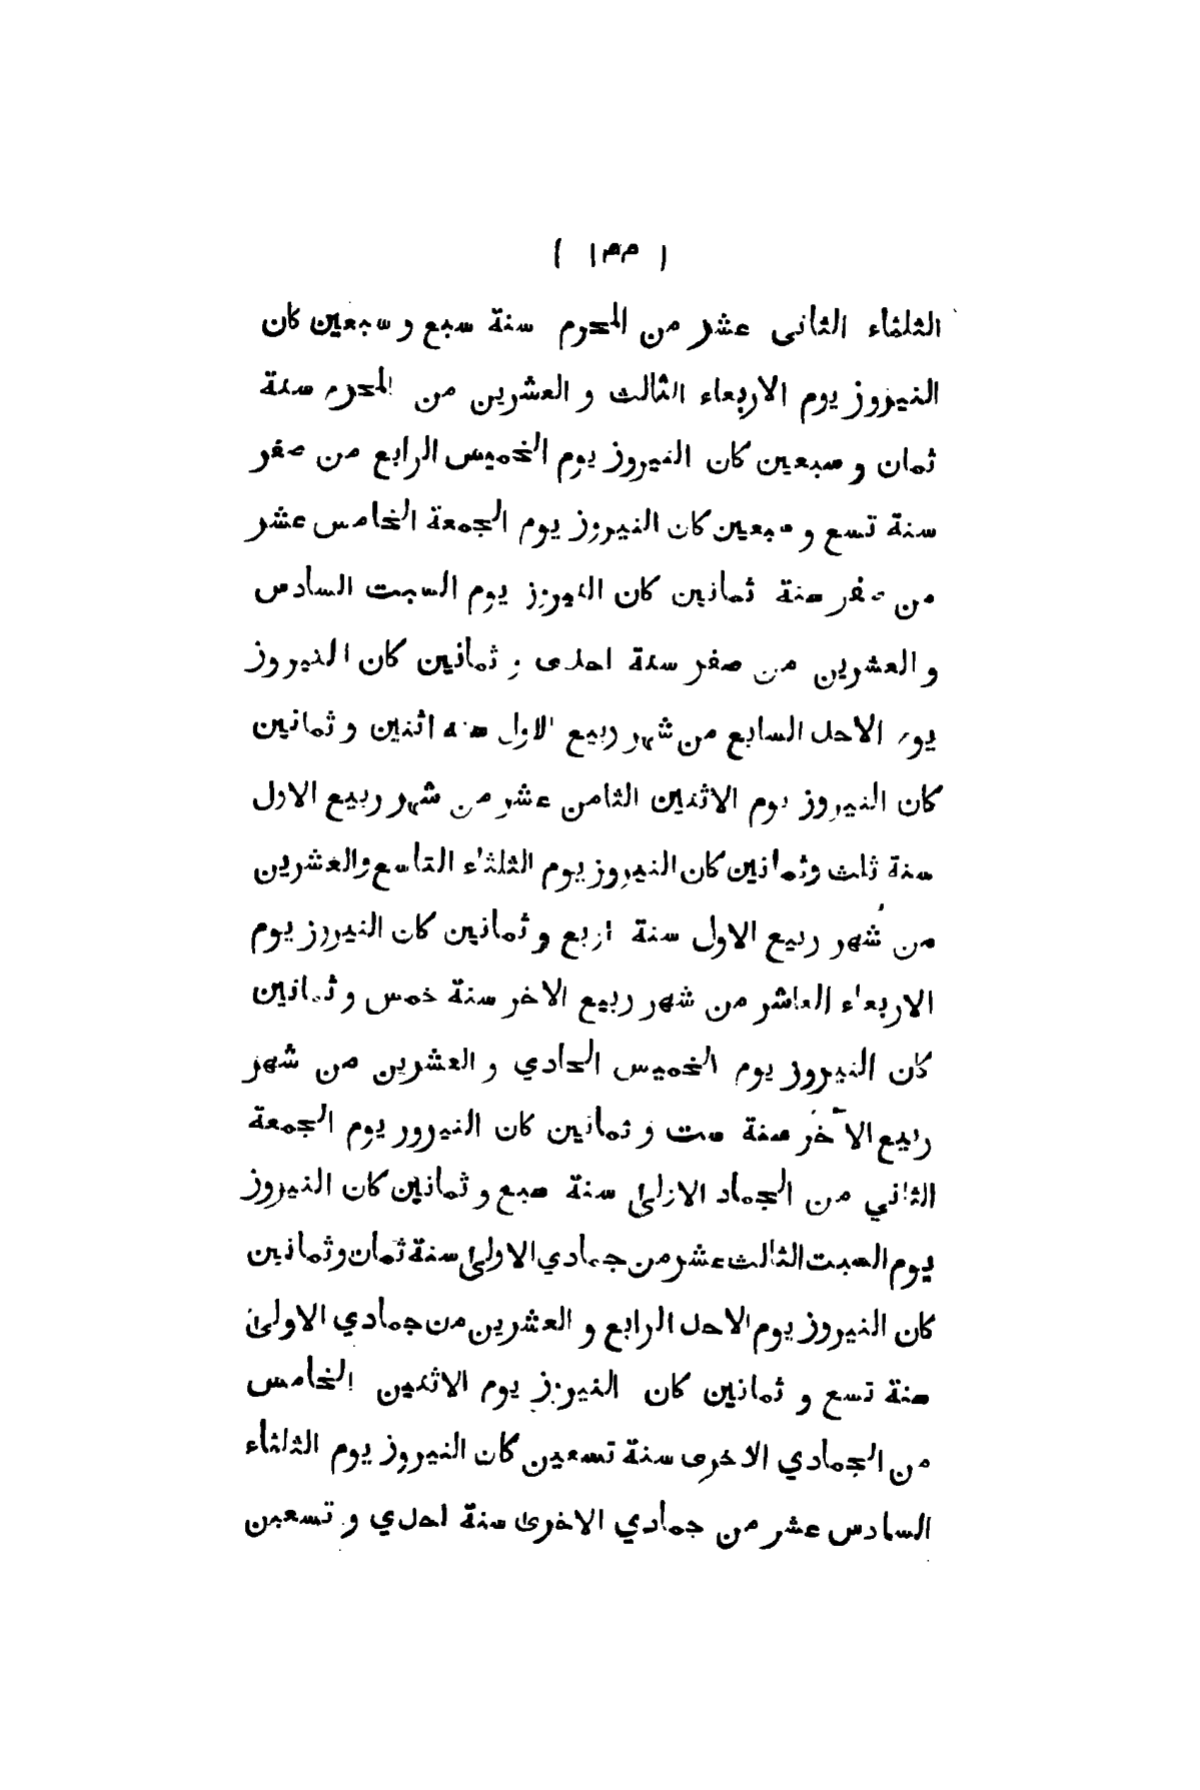 ( ١٣٣ )
الثلثاء الثانى عشر من المحرم سنة سبع و سبعين كان
النيروز يوم الاربعاء الثالث و العشرين من المحرم سنة
ثمان و سبعين كان النيروز يوم الخميس الرابع من صفر
سنة تسع و سبعين كان النيروز يوم الجمعة الخامس عشر
من صفر سنة ثمانين كان النيروز يوم السبت السادس
و العشرين من صفر سنة احدى و ثمانين كان النيروز
يوم الاحد السابع من شهر ربيع الاول سنه اثنين و ثمانين
كان النيروز يوم الاثنين الثامن عشر من شهر ربيع الاول
سنة ثلث وثمانين كان النيروز يوم الثلثاء التاسع والعشرين
من شهر ربيع الاول سنة اربع و ثمانين كان النيروز يوم
الاربعاء العاشر من شهر ربيع الاخر سنة خمس و ثمانين
كان النيروز يوم الخميس الحادي و العشرين من شهر
ربيع الآخر سنة ست و ثمانين كان النيرور يوم الجمعة
الثاني من الجماد الاولىٰ سنة سبع و ثمانين كان النيروز
يوم السبت الثالث عشر من جمادي الاولىٰ سنة ثمان و ثمانين
كان النيروز يوم الاحد الرابع و العشرين من جمادي الاولىٰ
سنة تسع و ثمانين كان النيروز يوم الاثنين الخامس
من الجمادي الاخرى سنة تسعين كان النيروز يوم الثلثاء
السادس عشر من جمادي الاخرىٰ سنة احدي و تسعين